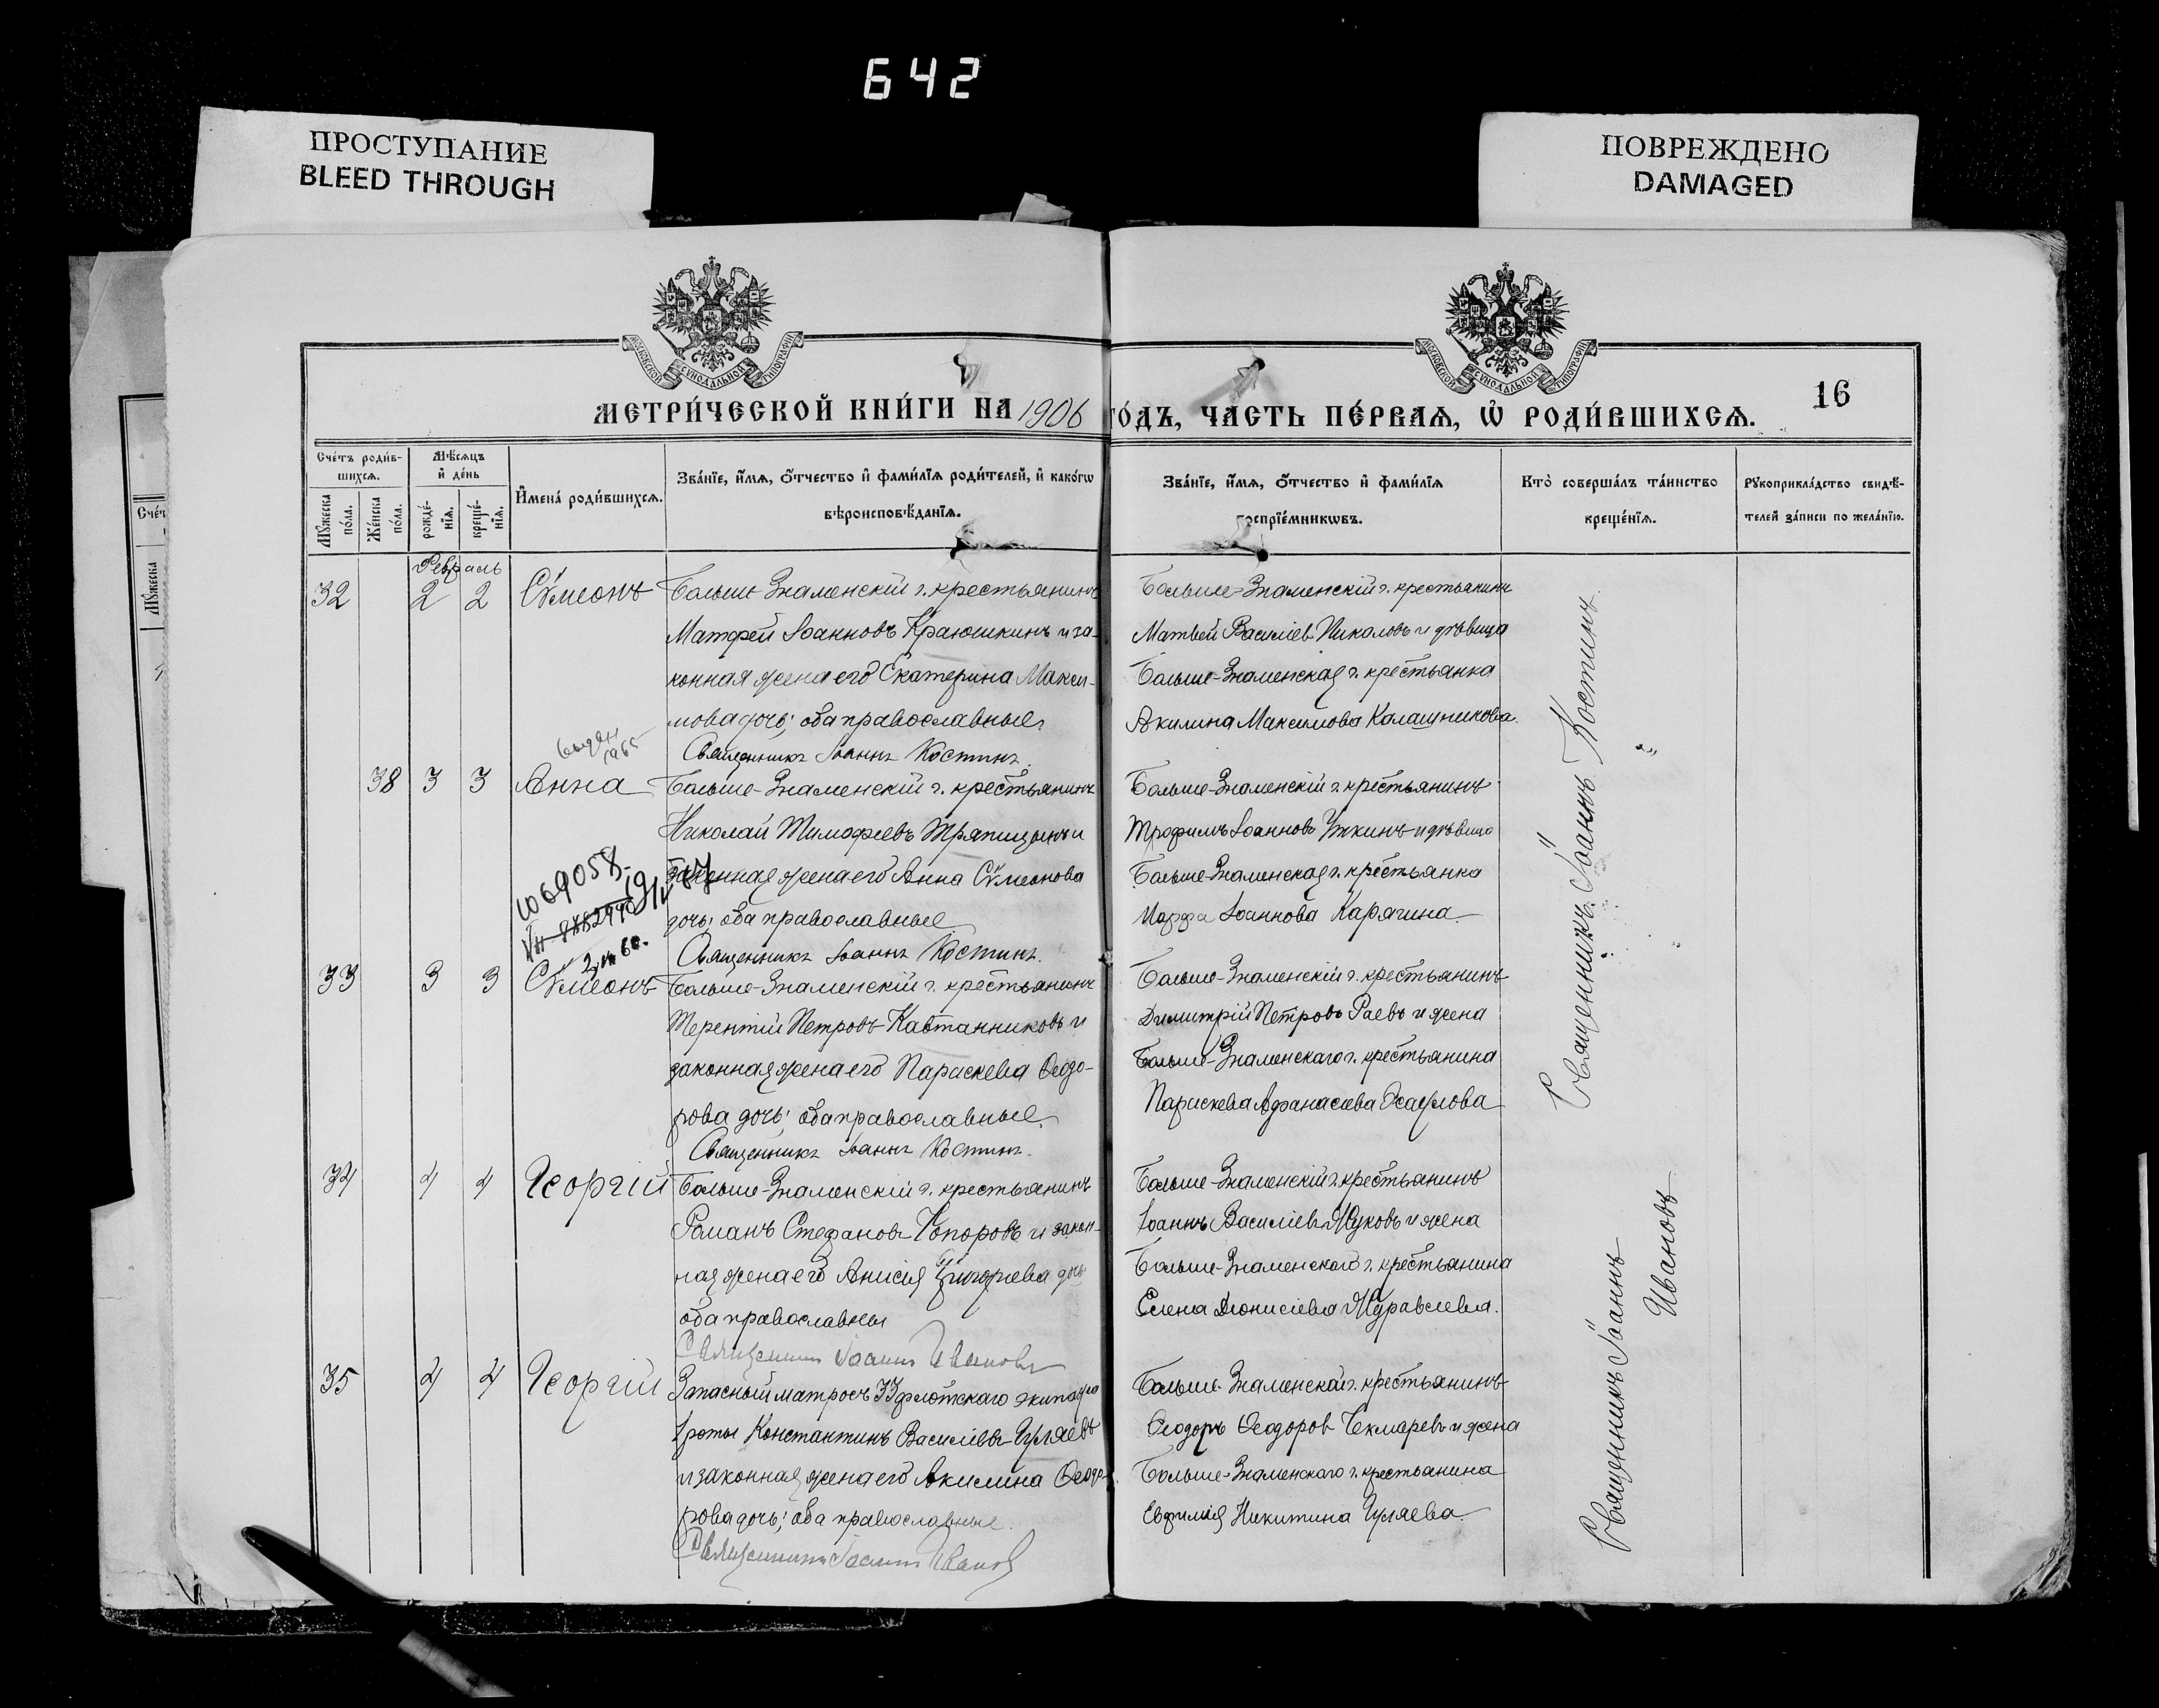 642
ПРОСТУПАНИЕ
BLEED THROUGH
ПОВРЕЖДЕНО
DAMAGED
МОСКОВСКОЙ СУНОДАЛЬНОЙ ТИПОГРАФІИ
МОСКОВСКОЙ СУНОДАЛЬНОЙ ТИПОГРАФІИ
МЕТРИ́ЧЕСКОЙ КНИ́ГИ НА 1906 ГО́ДЪ, ЧАСТЬ ПЕ́РВАѦ, Ѡ҆ РОДИ́ВШИХСѦ.
16
Сче́тъ роди́в-
шихсѧ.
Мꙋ́жеска по́ла.
Же́нска по́ла.
Мѣ́сѧцъ
и҆ де́нь
рожде́-
нїѧ.
креще́-
нїѧ.
И҆мена̀ роди́вшихсѧ.
Зва́нїе, и҆́мѧ, ѻ҆́тчество и҆ фами́лїѧ роди́телей, и҆ како́гѡ
вѣроисповѣ́данїѧ.
Зва́нїе, и҆́мѧ, ѻ҆́тчество и҆ фами́лїѧ
воспрїе́мникѡвъ.
Кто̀ соверша́лъ та́инство
креще́нїѧ.
Рꙋкоприкла́дство свидѣ́-
телей за́писи по жела́нїю.
Февраль
32 2 2 Сѷмеонъ
Больше-Знаменскій г. крестьянинъ
Матфей Іоанновъ Краюшкинъ и за-
конная жена его Екатерина Макси-
мова дочь; оба православные.
Священникъ Іоаннъ Костинъ.
Больше-Знаменскій г. крестьянинъ
Матвей Василіев Николовъ и дѣвица
Больше-Знаменская г. крестьянка
Акилина Максимова Калашникова.
выдан
1965
38 3 3 Анна
Больше-Знаменскій г. крестьянинъ
Николай Тимофеевъ Тряпицынъ и
законная жена его Анна Сѷмеонова
дочь; оба православные
Священникъ Іоаннъ Костинъ.
Больше-Знаменскій г. крестьянинъ
Трофимъ Іоанновъ Уткинъ и дѣвица
Больше-Знаменская г. крестьянка
Марфа Іоаннова Карягина.
33 3 3 Сѷмеонъ
Больше-Знаменскій г. крестьянинъ
Терентій Петровъ Кавтанниковъ и
законная жена его Параскева Ѳеодо-
рова дочь; оба православные.
Священникъ Іоаннъ Костинъ.
Больше-Знаменскій г. крестьянинъ
Димитрій Петровъ Раевъ и жена
Больше-Знаменскаго г. крестьянина
Параскева Афанасіева
Священникъ Іоаннъ Костинъ
34 4 4 Георгій
Больше-Знаменскій г. крестьянинъ
Романъ Стефановъ Топоровъ и закон-
ная жена его Анисія Григоріева дочь
оба православны
Священникъ Іоаннъ Ивановъ
Больше-Знаменскій г. крестьянинъ
Іоаннъ Василіевъ Жуковъ и жена
Больше-Знаменскаго г. крестьянина
Елена Діонисіева Журавлева.
35 4 4 Георгій
Запасный матросъ 33 флотскаго экипажа
1 роты Константинъ Василіевъ Гуляевъ
и законная жена его Акилина Ѳеодо-
рова дочь; оба православные.
Священникъ Іоаннъ Ивановъ
Больше-Знаменскій г. крестьянинъ
Ѳеодоръ Ѳеодоров Чекмаревъ и жена
Больше-Знаменскаго г. крестьянина
Евфимія Никитина Гуляева.
Священникъ Іоаннъ
Ивановъ
Сче́т
Мꙋ́жеска